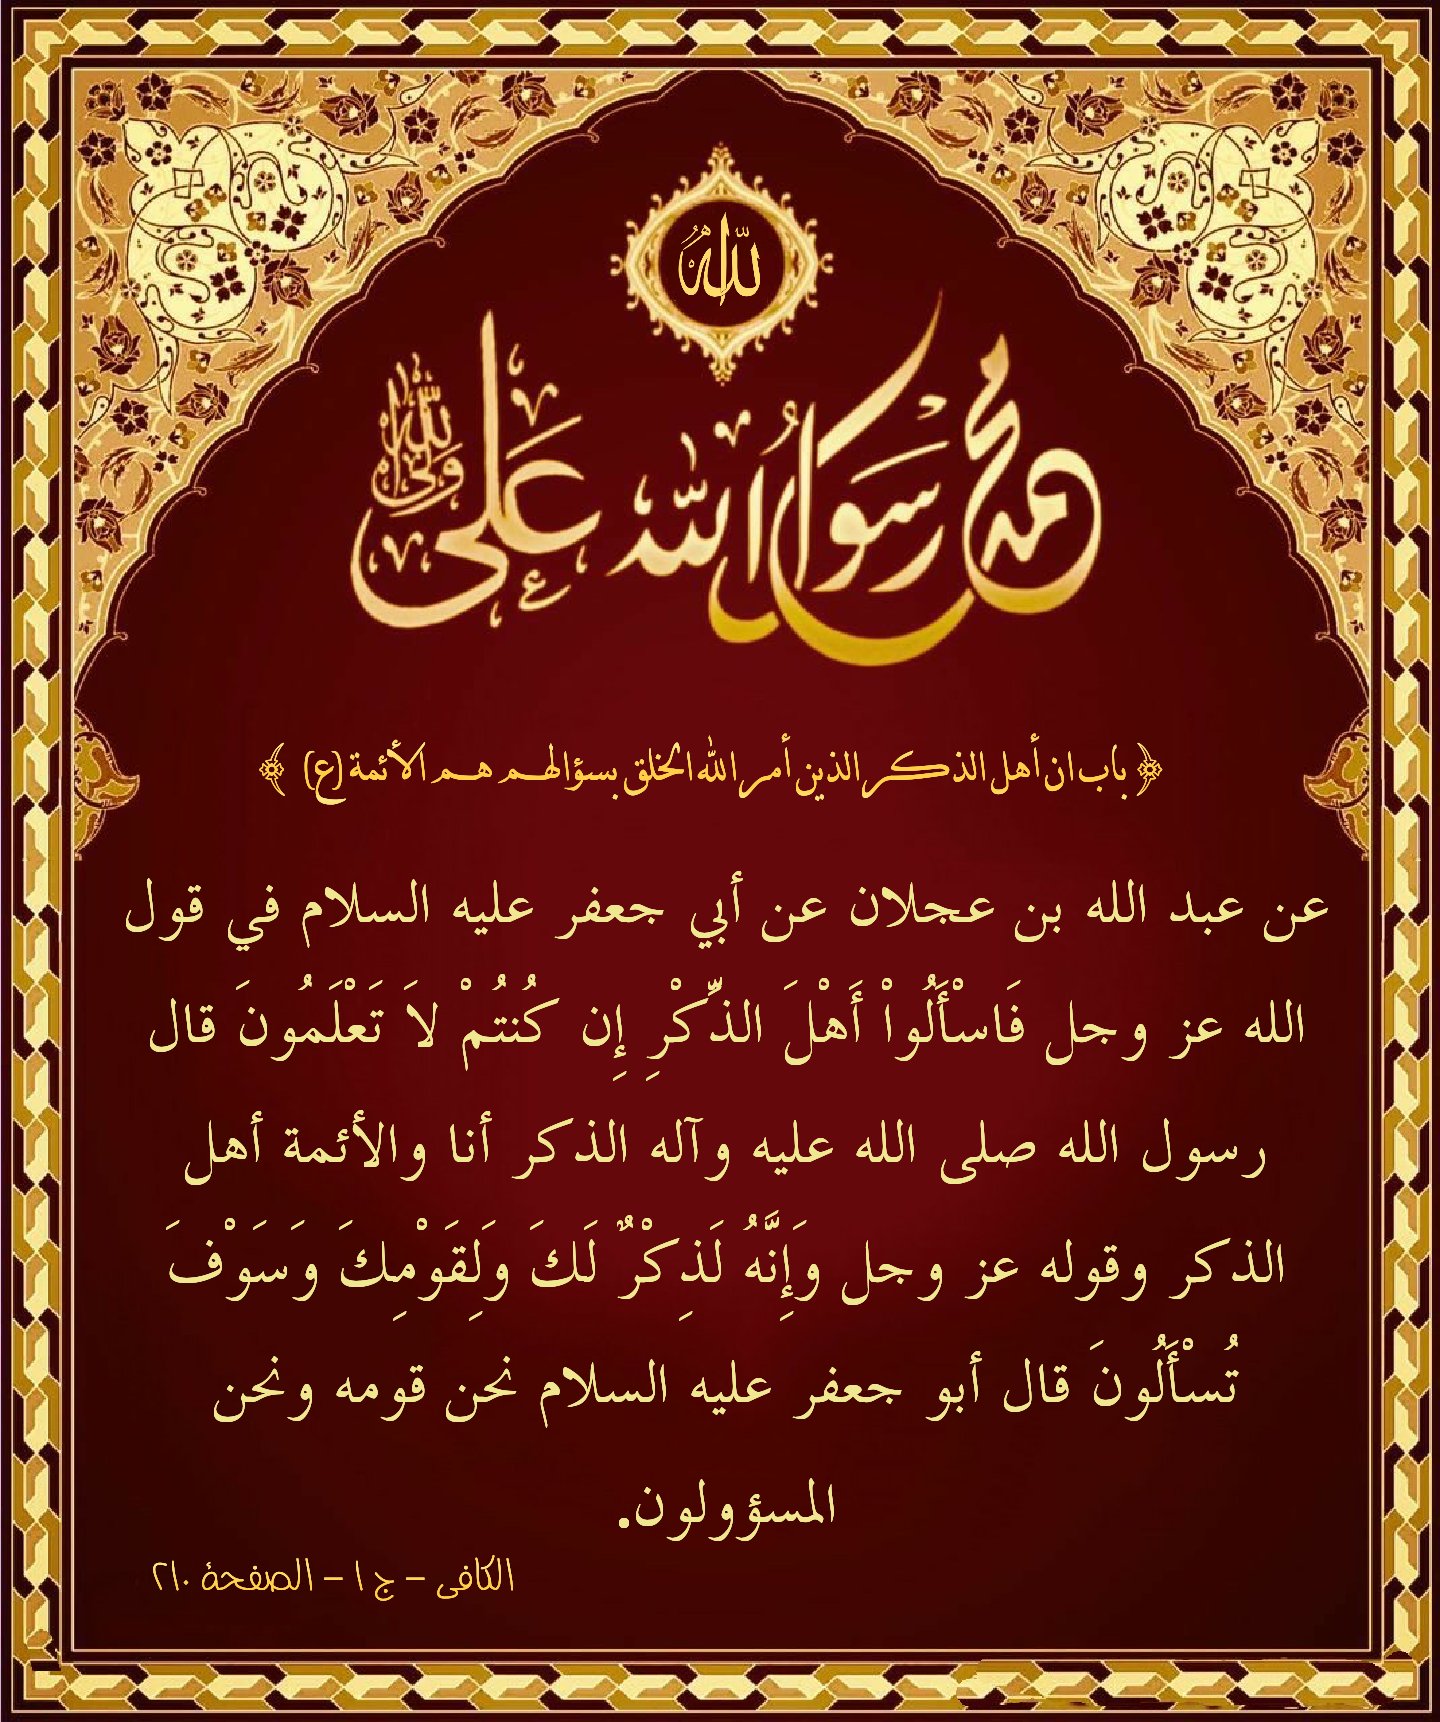 الله
محمد رسول الله علي ولي الله
﴿ باب ان أهل الذكر الذين أمر الله الخلق بسؤالهم هم الأئمة (ع) ﴾
عن عبد الله بن عجلان عن أبي جعفر عليه السلام في قول
الله عز وجل فَاسْأَلُواْ أَهْلَ الذِّكْرِ إِن كُنتُمْ لاَ تَعْلَمُونَ قال
رسول الله صلى الله عليه وآله الذكر أنا والأئمة أهل
الذكر وقوله عز وجل وَإِنَّهُ لَذِكْرٌ لَكَ وَلِقَوْمِكَ وَسَوْفَ
تُسْأَلُونَ قال أبو جعفر عليه السلام نحن قومه ونحن
المسؤولون.
الكافى – ج ١ – الصفحة ٢١٠